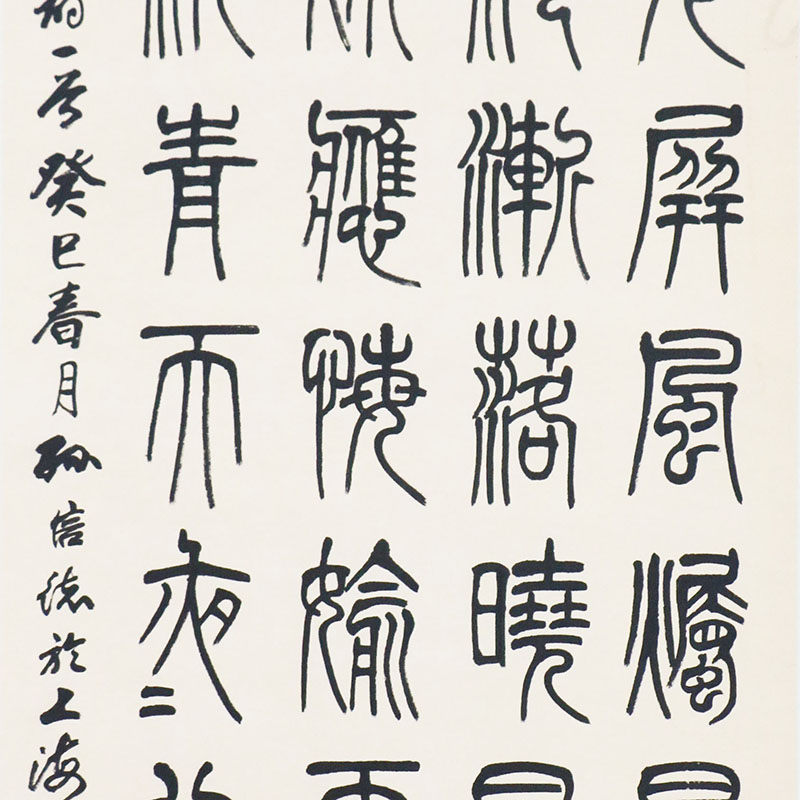 屏風燭
漸落曉
應悔媮
青天夜二
一首癸巳春月孫信德於上海